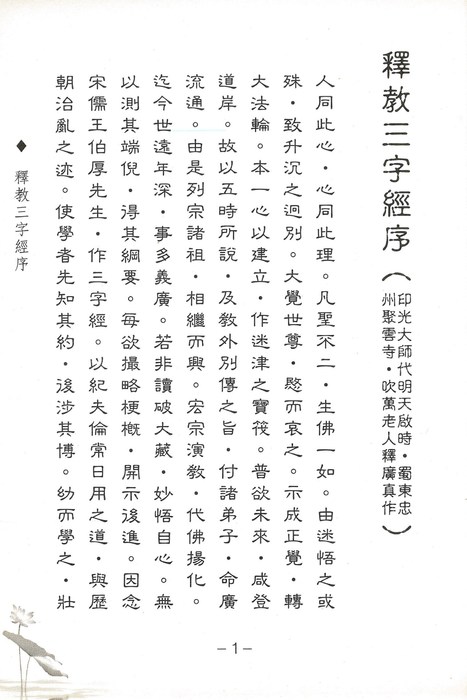 釋教三字經序（印光大師代明天啟時・蜀東忠
州聚雲寺・吹萬老人釋廣真作）
人同此心・心同此理。凡聖不二・生佛一如。由迷悟之或
殊・致升沉之迥別。大覺世尊・愍而哀之。示成正覺・轉
大法輪。本一心以建立・作迷津之寶筏。普欲未來・咸登
道岸。故以五時所說・及教外別傳之旨・付諸弟子・命廣
流通。由是列宗諸祖・相繼而興。宏宗演教・代佛揚化。
迄今世遠年深・事多義廣。若非讀破大藏・妙悟自心。無
以測其端倪・得其綱要。每欲撮略梗概・開示後進。因念
宋儒王伯厚先生・作三字經。以紀夫倫常日用之道・與歷
朝治亂之迹。使學者先知其約・後涉其博。幼而學之・壯
◆ 釋教三字經序
－1－